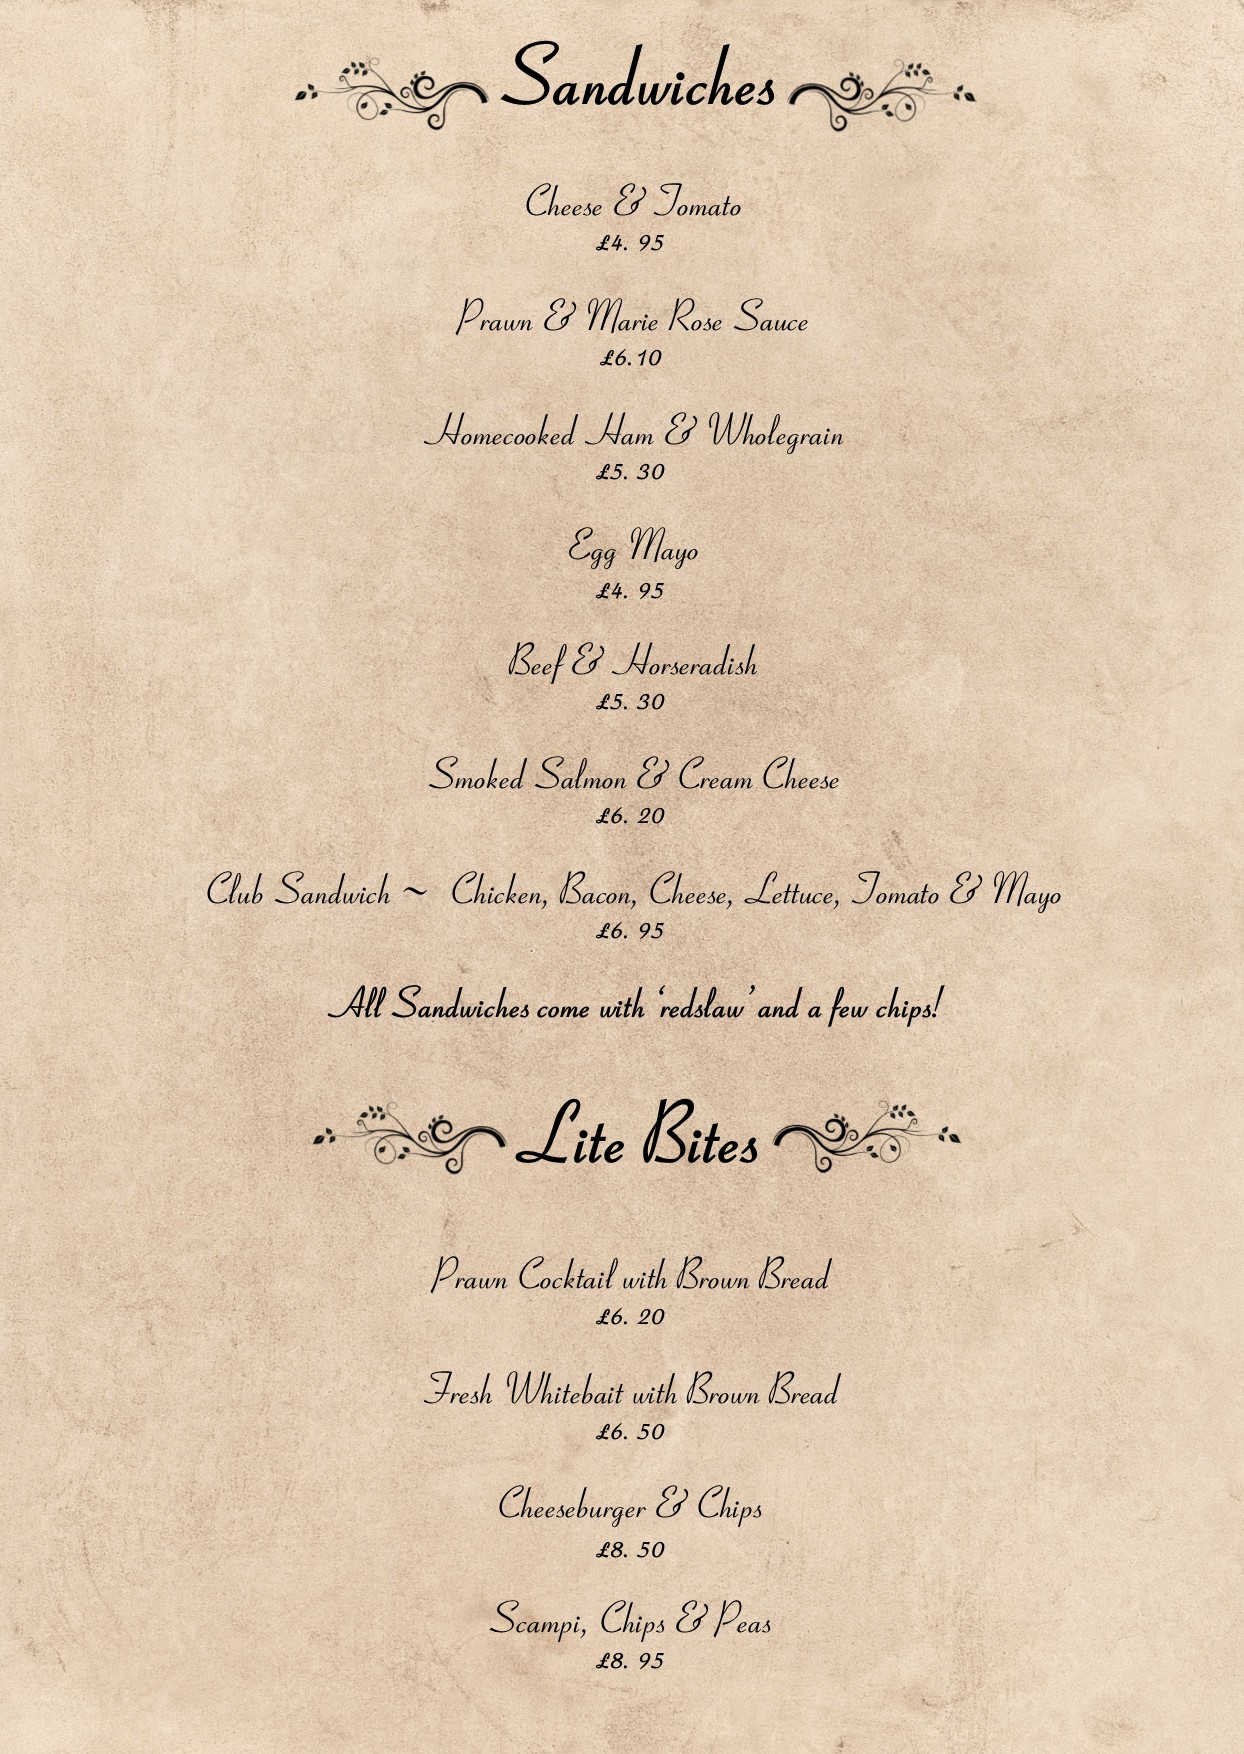 Sandwiches
Cheese & Tomato
£4. 95
Prawn & Marie Rose Sauce
£6.10
Homecooked Ham & Wholegrain
£5. 30
Egg Mayo
£4. 95
Beef & Horseradish
£5. 30
Smoked Salmon & Cream Cheese
£6. 20
Club Sandwich ~ Chicken, Bacon, Cheese, Lettuce, Tomato & Mayo
£6. 95
All Sandwiches come with ‘redslaw’ and a few chips!
Lite Bites
Prawn Cocktail with Brown Bread
£6. 20
Fresh Whitebait with Brown Bread
£6. 50
Cheeseburger & Chips
£8. 50
Scampi, Chips & Peas
£8. 95